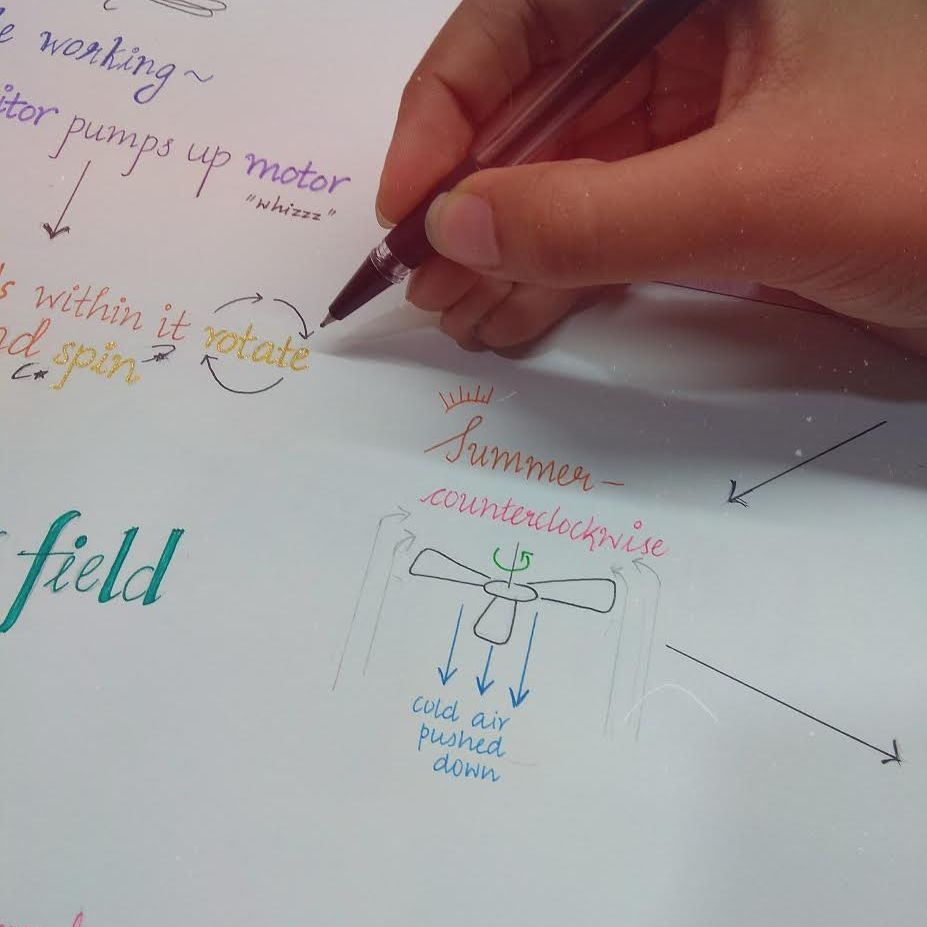 working~
pumps up motor
"whizzz"
within it rotate
spin
Summer-
counterclockwise
field
cold air
pushed
down